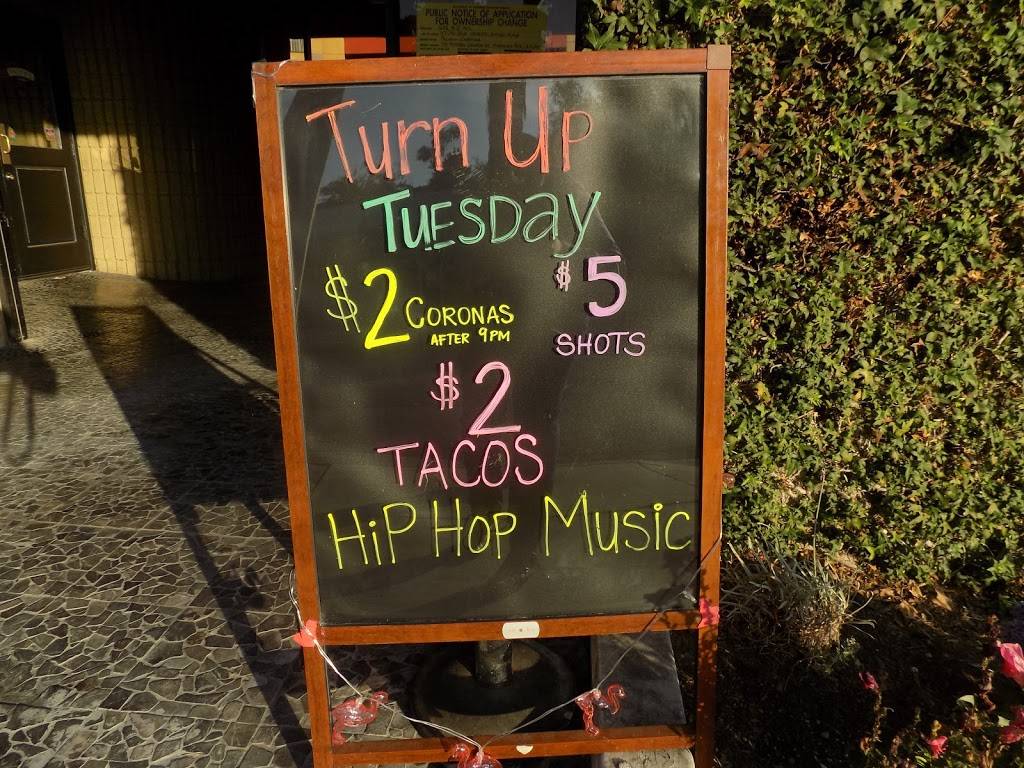 PUBLIC NOTICE OF APPLICATION
FOR OWNERSHIP CHANGE
Turn Up
Tuesday
$2 Coronas
after 9pm
$5
SHOTS
$2
TACOS
HiP Hop Music